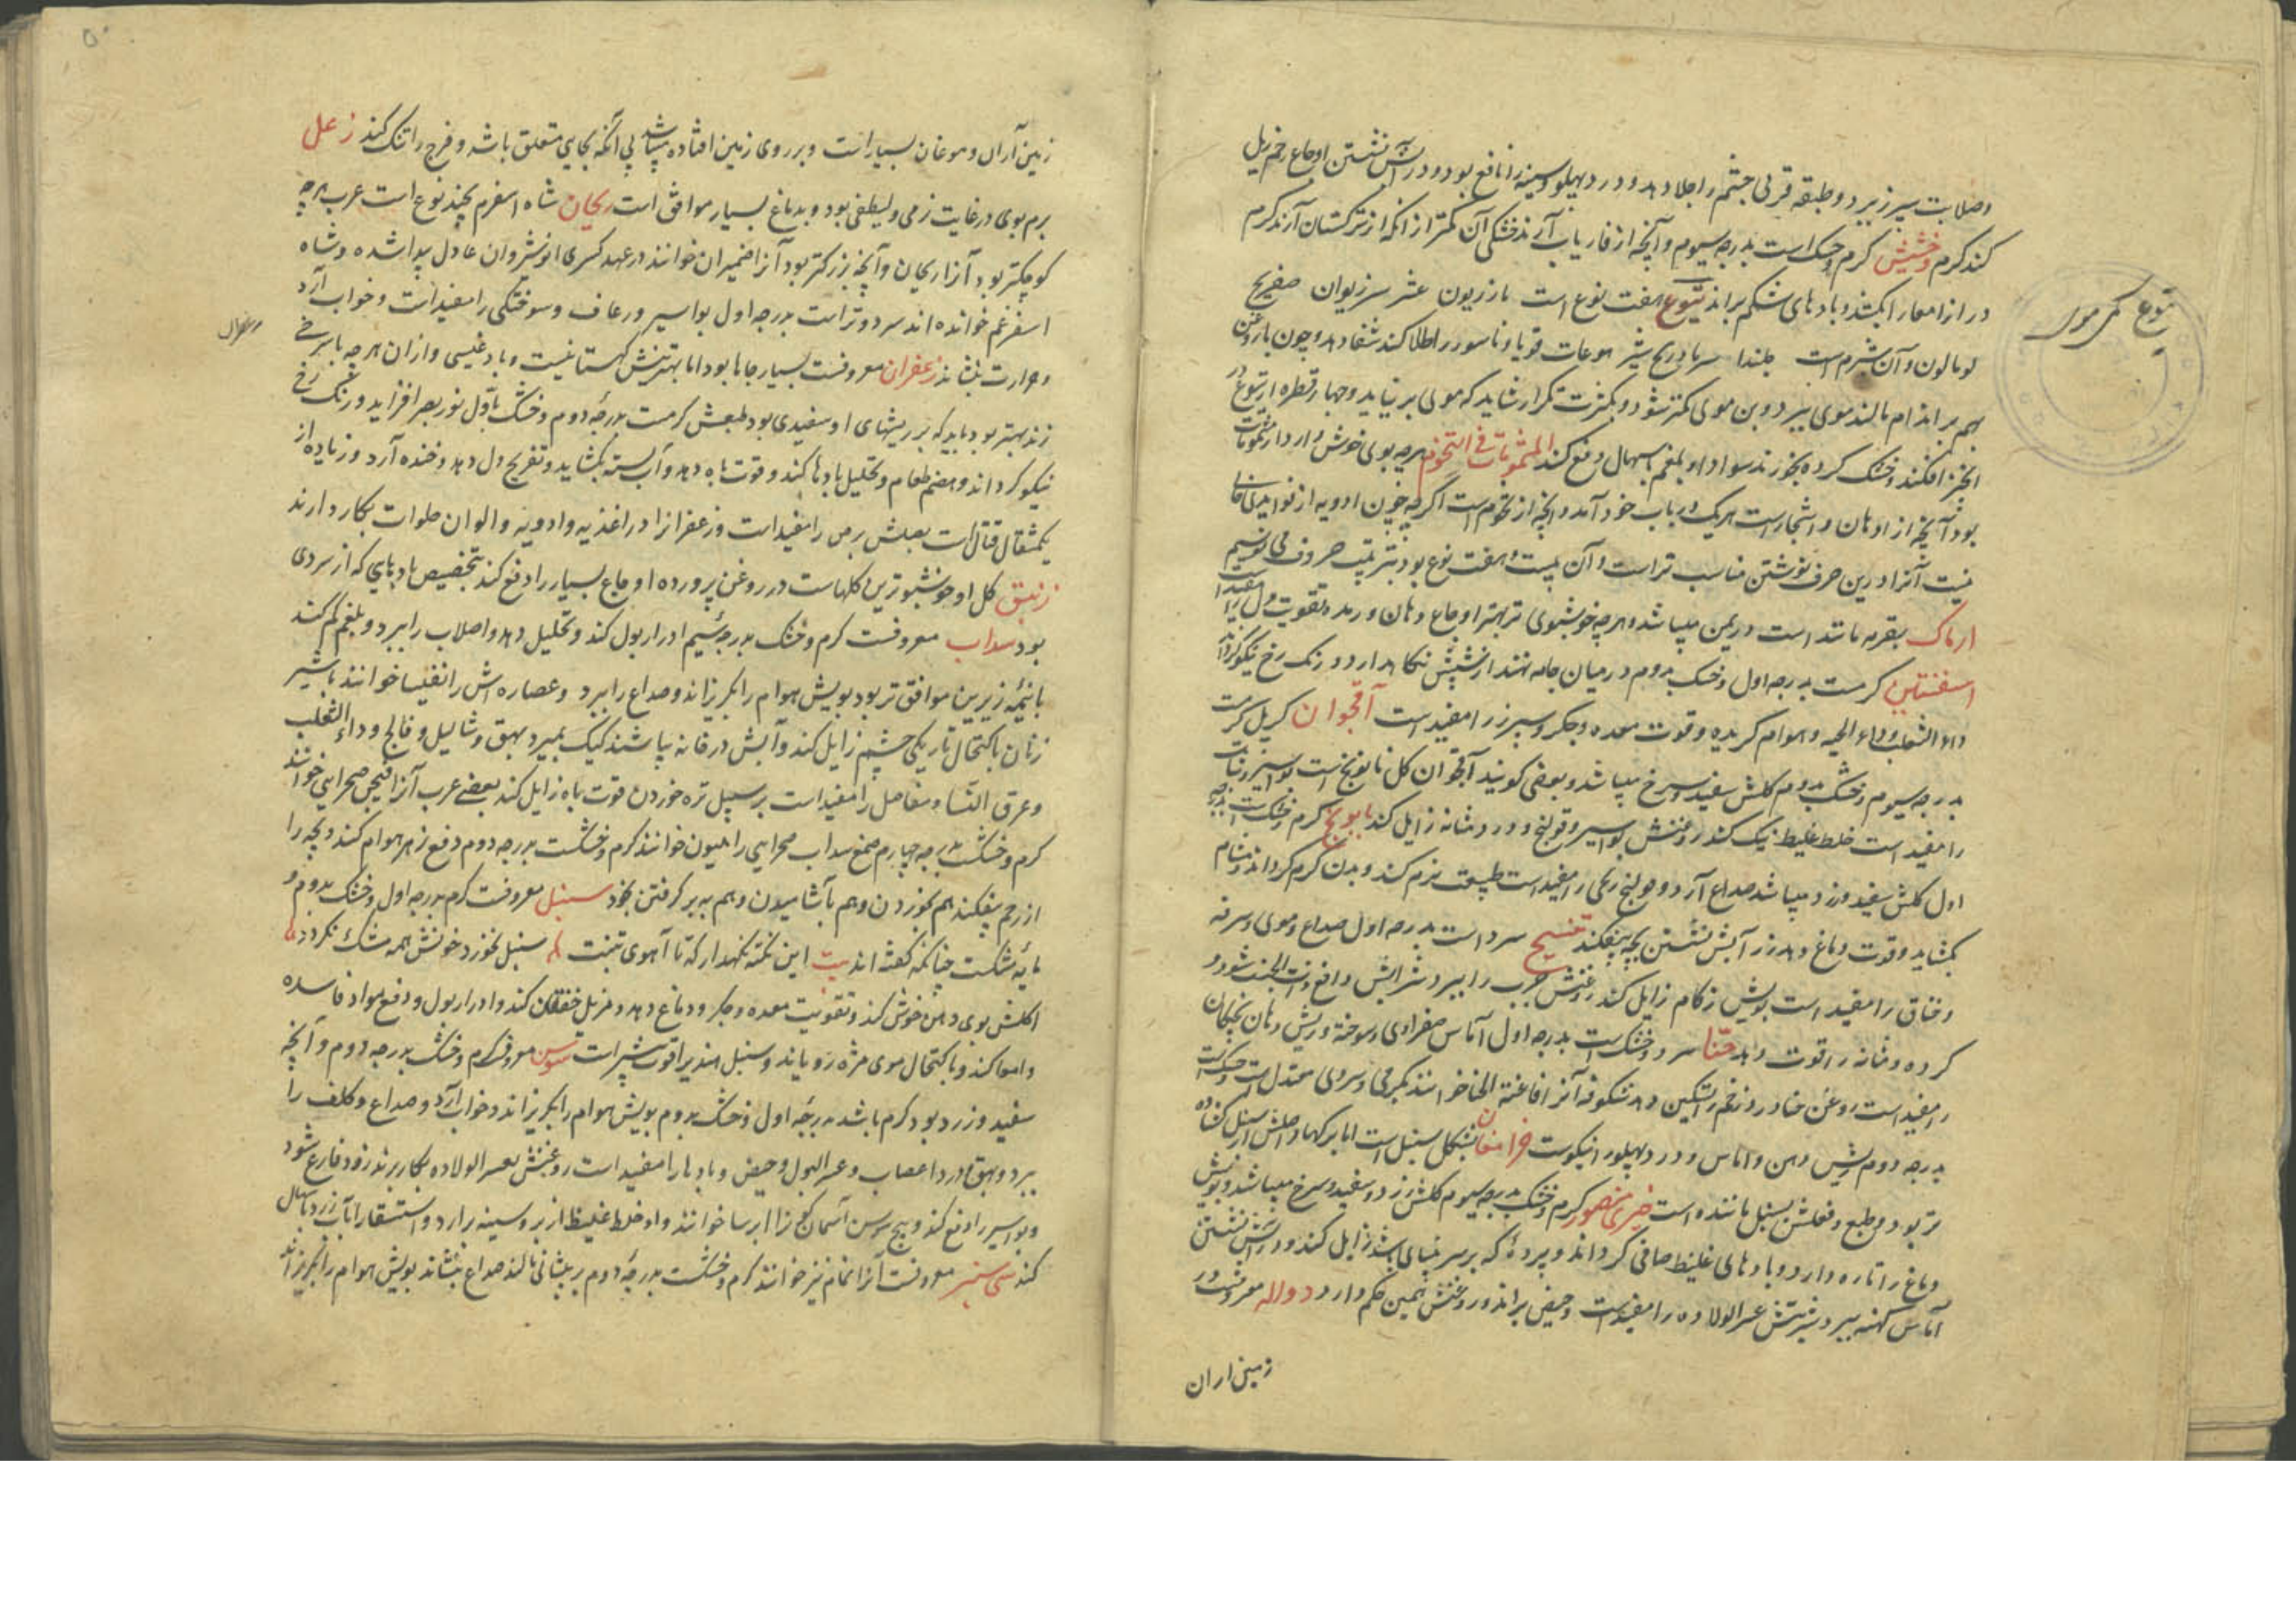 وصلابت سپرز ببرد و طبقه قرنی چشم را جلا دهد و درد پهلو و سینه را نافع بود و در آبش نشستن اوجاع رحم زایل
کند کرم وخشیش کرم و خشک است بدرجه سیوم و آنچه از فاریاب آرند خشکی آن کمتر از انکه از ترکستان آرند کرم
دراز امعا را بکشد و بادهای شکم براند یتوع هفت نوع است مازریون عشر سرزیوان
یتوع
لومالون و آن شبرم است جلندا قوبا و ناسور را طلا کند شفا دهد و چون با روغن
بهم بر اندام مالند موی ببرد و بن موی کمتر شود و بکثرت تکرار شاید که موی بر نیاید و چهار قطره از یتوع در
انجیر افکنند و خشک کرده بخورند سودا و بلغم باسهال دفع کند المشمومات هرچه بوی خوش دارد از مشمومات
بود آنچه از ادهان و اشجار است هر یک در باب خود آمد و آنچه از نجوم است اگرچه چون ادویه از فواید خالی
نیست آنرا درین حرف نوشتن مناسب تر است و آن بیست و هفت نوع بود بترتیب حروف می نویسیم
ارماک بقرفه مانند است در یمن میباشد و هرچه خوشبوی تر بهتر اوجاع دهان و رمد و تقویت دل را مفید است
افسنتین کرمست بدرجه اول و خشک بدوم در میان جامه نهند از شپش نگاه دارد و رنگ رخ نیکو گرداند
داء الثعلب و داء الحیه و هوام گزیده و قوت معده و جگر و سپرز را مفید است اقحوان کرمست
بدرجه سیوم و خشک بدوم گلش سفید و سرخ میباشد و بعضی گویند اقحوان گل بابونج است
را مفید است خلط غلیظ نیک کند روغنش بواسیر و قولنج و درد مثانه زایل کند بابونج کرم و خشک است بدرجه
اول گلش سفید و زرد میباشد صداع آرد و قولنج ریحی را مفید است طبیعت نرم کند و بدن کرم گرداند و مسام
بگشاید و قوت دماغ دهد در آبش نشستن بچه بیفکند بنفسج سرد است بدرجه اول صداع دموی و سرفه
و خناق را مفید است بویش زکام زایل کند روغنش جرب را ببرد شرابش دافع ذات الجنب شود و
گرده و مثانه را قوت دهد حنا سرد و خشک است بدرجه اول آماس صفراوی و سوخته و ریش دهان بچگان
را مفید است روغن حنا درد زخم را تسکین دهد شکوفه آنرا فاغیة الحنا خوانند بگرمی و سردی معتدل است و خشک است
بدرجه دوم ریش دهن و آماس و درد پهلو را نیکوست خزامی بشکل سنبل است اما برگها و اصلش از سنبل
تر بود و طبع و فعلش بسنبل ماننده است خیری منصور کرم و خشک بدرجه سیوم گلش زرد و سفید و سرخ میباشد و بویش
دماغ را تازه دارد و بادهای غلیظ صافی گرداند و پرده که بر سر بینائی باشد زایل کند و در آبش نشستن
آماس کهنه ببرد و شربتش عسر الولاده را مفید است و حیض براند و روغنش همین حکم دارد دواله معروفست در
زمین اران
زمین آران و موغان بسیار است و بر روی زمین افتاده میباشد بی آنکه بجای متعلق باشد و فرج را تنک کند زعلی
برم بوی در غایت نرمی و لطیفی بود و بدماغ بسیار موافق است ریحان شاه اسفرم بچند نوع است عرب هرچه
کوچکتر بود آنرا ریحان و آنچه بزرگتر بود آنرا ضمیران خوانند در عهد کسری انوشروان عادل پیدا شده و شاه
اسفرغم خوانده اند سرد و تر است بدرجه اول بواسیر و رعاف و سوختگی را مفید است و خواب آرد
و حرارت بنشاند زعفران معروفست بسیار جاها بود اما بهترینش کهستانیست و بادغیسی و ازان هرچه با سرخی
زند بهتر بود باید که بر ریشهای او سفیدی بود طبعش کرمست بدرجه دوم و خشک باول نور بصر افزاید و رنگ رخ
نیکو گرداند و هضم طعام و تحلیل بادها کند و قوت باه دهد و آب بسته بگشاید و تفریح دل دهد و خنده آرد و زیاده از
یکمثقال قتال است بصلش برص را مفید است و زعفرانرا در اغذیه و ادویه و الوان حلوات بکار دارند
زنبق گل او خوشبوترین گلهاست در روغن پرورده اوجاع بسیار را دفع کند بتخصیص بادهایی که از سردی
بود سداب معروفست کرم و خشک بدرجه سیم ادرار بول کند و تحلیل دهد و اصلاب را ببرد و بلغم کم کند
با نیمه زیرین موافق تر بود بویش هوام را بگریزاند و صداع را ببرد و عصاره اش را انفیسا خوانند با شیر
زنان باکتحال تاریکی چشم زایل کند و آبش در خانه بپاشند کیک بمیرد بهق و ثالیل و فالج و داء الثعلب
و عرق النسا و مفاصل را مفید است بر سبیل تره خوردن قوت باه زایل کند بعضی عرب آنرا فیجن صحرایی خوانند
کرم و خشکست بدرجه چهارم صمغ سداب صحرایی را هلیون خوانند کرم و خشکست بدرجه دوم دفع زهر هوام کند و بچه را
از رحم بیفکند هم بخوردن و هم بآشامیدن و هم به بر گرفتن بخود سنبل معروفست کرم بدرجه اول و خشک بدوم و
مایه مشکست چنانکه گفته اند بیت این نکته نگهدار که تا آهوی تبت سنبل نخورد خونش همه مشک نگردد
اکلش بوی دهن خوش کند و تقویت معده و جگر و دماغ دهد و مزیل خفقان کند و ادرار بول و دفع مواد فاسده
و امعا کند و باکتحال موی مژه رویاند و سنبل هندی را قوت بیشتر است سوسن معروف کرم و خشک بدرجه دوم و آنچه
سفید و زرد بود کرم باشد بدرجه اول و خشک بدوم بویش هوام را بگریزاند و خواب آرد و صداع و کلف را
ببرد و بهق و درد اعصاب و عسر البول و حیض و بادها را مفید است روغنش بعسر الولاده بکار برند زود فارغ شود
و بواسیر را دفع کند و بیخ سوسن آسمان گون را ایرسا خوانند و او خلط غلیظ از بر و سینه برارد و استسقا را آب زرد باسهال
کند سی سنبر معروفست آنرا نمام نیز خوانند کرم و خشکست بدرجه دوم بر پیشانی مالند صداع بنشاند بویش هوام را بگریزاند